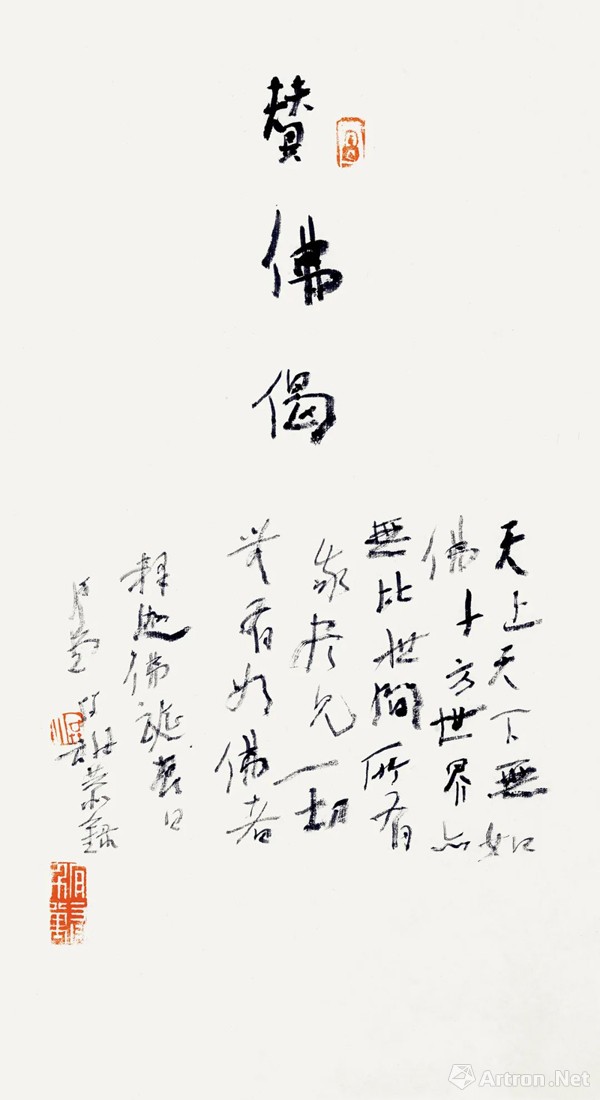 赞佛偈
天上天下無如
佛十方世界亦
無比世間所有
我尽见一切
無有如佛者
释迦佛诞辰日
恭録
Artron.Net